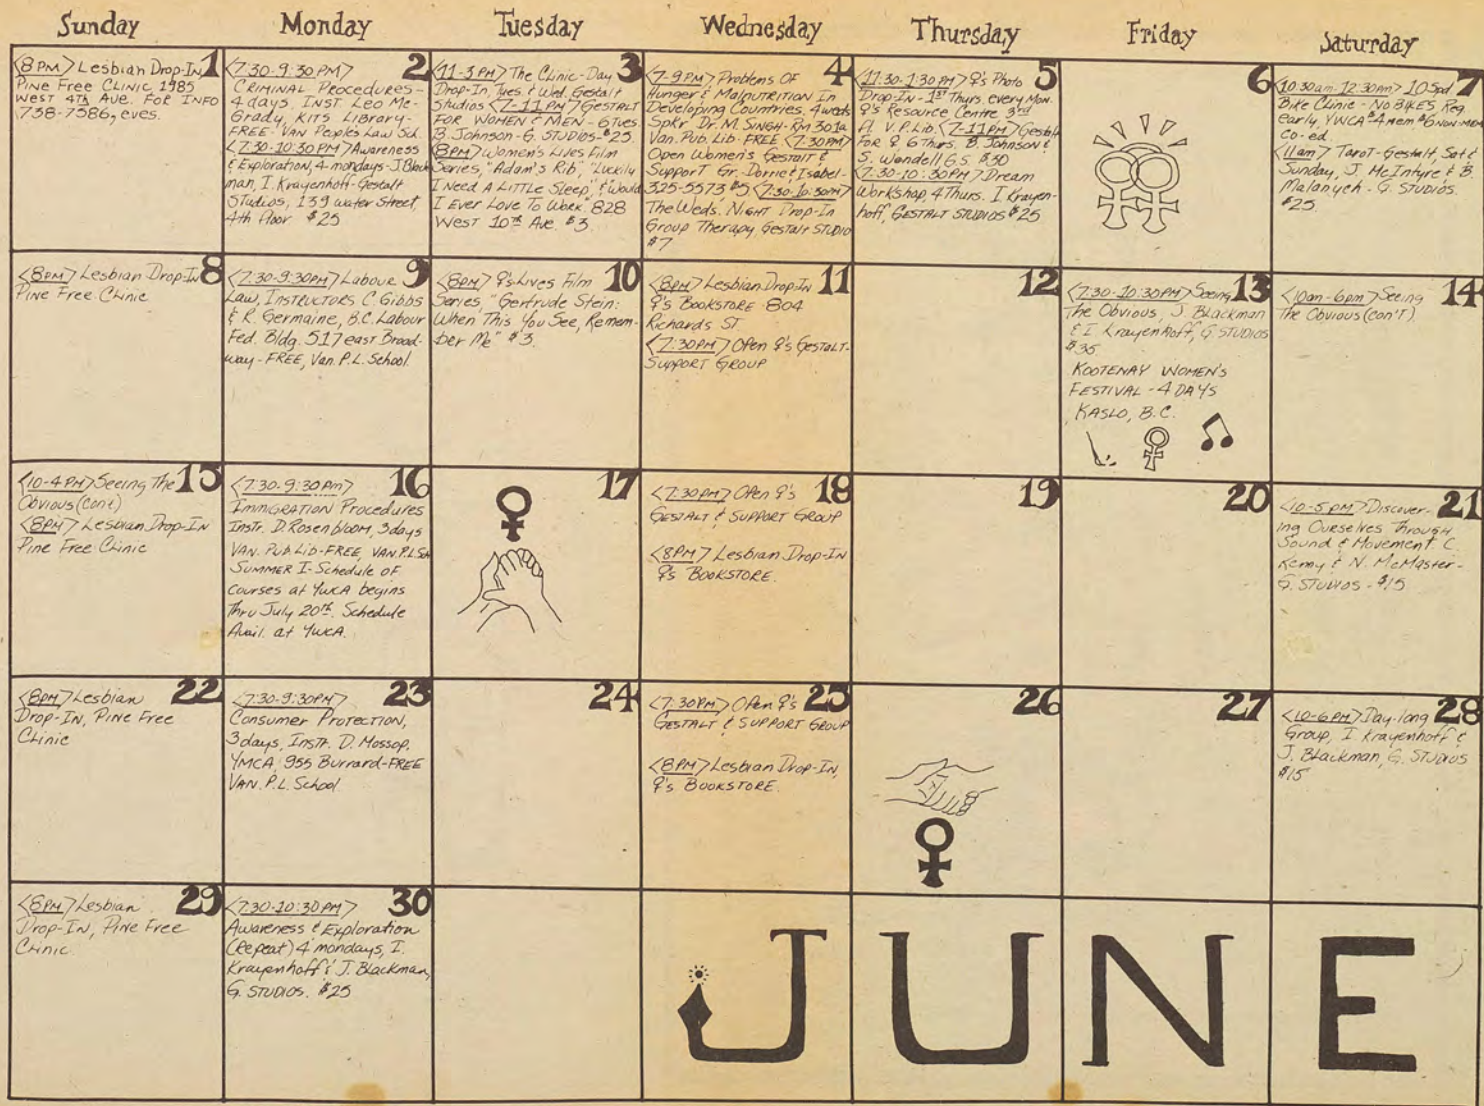 Sunday
Monday
Tuesday
Wednesday
Thursday
Friday
Saturday
1
<8PM> Lesbian Drop-In,
Pine Free Clinic 1985
West 4th Ave. For Info
738-7386, eves.
2
<7:30-9:30PM>
Criminal Procedures-
4 days. Inst Leo Mc-
Grady, Kits Library-
FREE. Van Peoples Law Sch.
<7:30-10:30PM> Awareness
& Exploration, 4 mondays-J Black
man, I. Krayenhoff-Gestalt
Studios, 139 Water Street,
4th floor $25
3
<11-3PM> The Clinic-Day
Drop-In, Tues. & Wed. Gestalt
Studios <7-11PM> Gestalt
For Women & Men - 6 Tues.
B. Johnson-G. Studios-$25.
<8PM> Women's Lives Film
Series, "Adam's Rib," "Luckily
I Need A Little Sleep," & "Would
I Ever Love To Work" 828
West 10th Ave. $3.
4
<7-9PM> Problems Of
Hunger & Malnutrition In
Developing Countries. 4 weeks
Spkr Dr. M. Singh-Rm 301a
Van. Pub. Lib-FREE <7:30PM>
Open Women's Gestalt &
Support Gr. Dorrie & Isabel-
325-5573 $5 <7:30-10:30PM>
The Weds. Night Drop-In
Group Therapy Gestalt Studio
$7
5
<11:30-1:30PM> ♀'s Photo
Drop-In - 1st Thurs. every Mon.
♀'s Resource Centre 3rd
fl. V.P. Lib. <7-11PM> Gestalt
For ♀ 6 Thurs. B. Johnson &
S. Wendell G.S. $30
<7:30-10:30PM> Dream
Workshop, 4 Thurs. I. Krayen-
hoff, Gestalt Studios $25
6
7
<10:30am-12:30pm> 10 Spd
Bike Clinic - No BIKES Reg
early, YWCA $4 mem $6 non-mem
co-ed.
<11am> Tarot-Gestalt, Sat &
Sunday, J. McIntyre & B.
Malanych - G. Studios.
$25.
8
<8PM> Lesbian Drop-In
Pine Free Clinic
9
<7:30-9:30PM> Labour
Law, Instructors C. Gibbs
& R. Germaine, B.C. Labour
Fed. Bldg. 517 east Broad-
way-FREE, Van. P.L. School.
10
<8PM> ♀'s Lives Film
Series, "Gertrude Stein:
When This You See, Remem-
ber Me" $3.
11
<8PM> Lesbian Drop-In
♀'s Bookstore 804
Richards St.
<7:30PM> Open ♀'s Gestalt-
Support Group
12
13
<7:30-10:30PM> Seeing
The Obvious, J. Blackman
& I. Krayenhoff, G. Studios
$35
Kootenay Women's
Festival - 4 Days
Kaslo, B.C.
14
<10am-6pm> Seeing
The Obvious (con't)
15
<10-4PM> Seeing The
Obvious (cont)
<8PM> Lesbian Drop-In
Pine Free Clinic
16
<7:30-9:30pm>
Immigration Procedures
Instr. D. Rosenbloom, 3 days
Van. Pub. Lib-FREE, Van P.L. Sch
Summer I-Schedule of
courses at YWCA begins
thru July 20th. Schedule
Avail. at YWCA.
17
18
<7:30PM> Open ♀'s
Gestalt & Support Group
<8PM> Lesbian Drop-In
♀'s Bookstore.
19
20
21
<10-5PM> Discover-
ing Ourselves Through
Sound & Movement C.
Kenny & N. McMaster-
G. Studios - $15
22
<8PM> Lesbian
Drop-In, Pine Free
Clinic
23
<7:30-9:30PM>
Consumer Protection,
3 days, Instr. D. Mossop,
YMCA 955 Burrard-FREE
Van. P.L. School
24
25
<7:30PM> Open ♀'s
Gestalt & Support Group
<8PM> Lesbian Drop-In,
♀'s Bookstore.
26
27
28
<10-6PM> Day-long
Group, I Krayenhoff &
J. Blackman, G. Studios
$15
29
<8PM> Lesbian
Drop-In, Pine Free
Clinic.
30
<7:30-10:30PM>
Awareness & Exploration
(Repeat) 4 mondays, I.
Krayenhoff & J. Blackman,
G. Studios. $25
JUNE